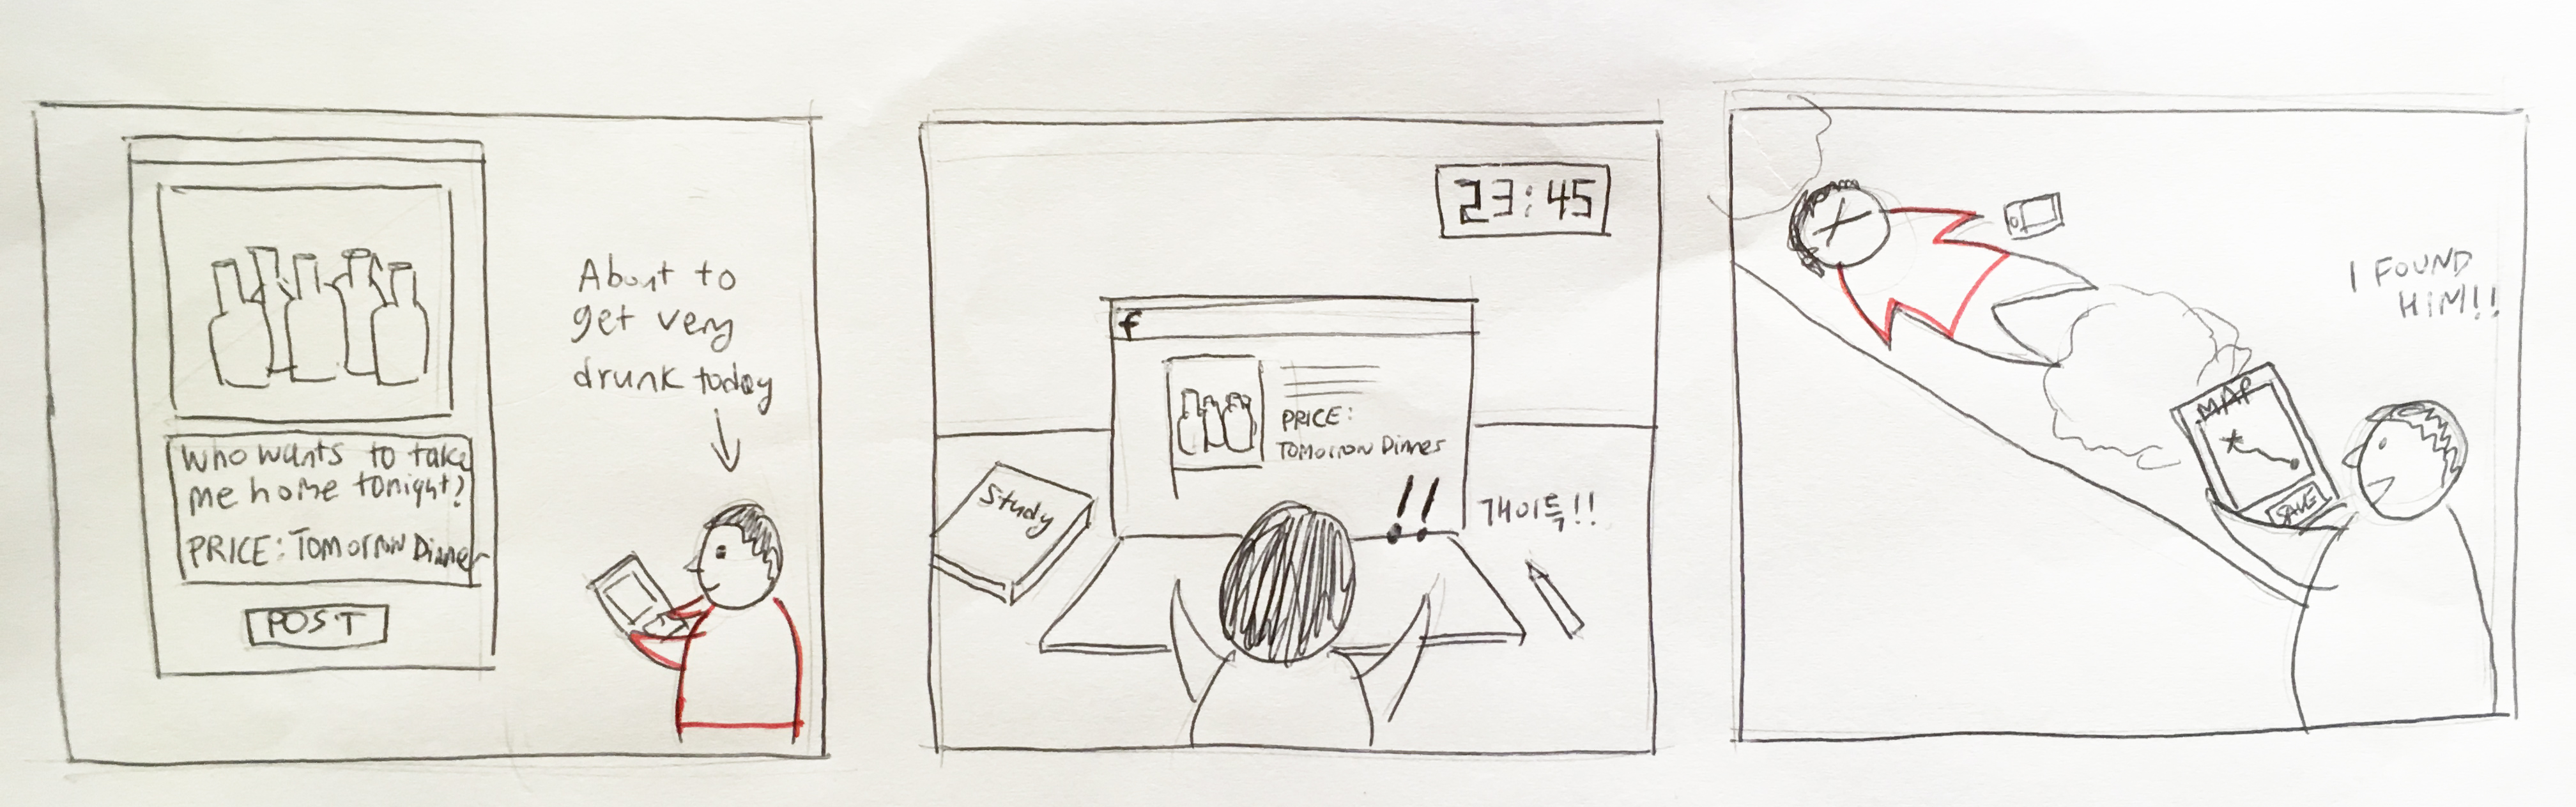 Who wants to take
me home tonight?
PRICE: Tomorrow Dinner
POST
About to
get very
drunk today
23:45
f
PRICE:
Tomorrow Dinner
Study
!!
개이득!!
I FOUND
HIM!!
MAP
SAVE